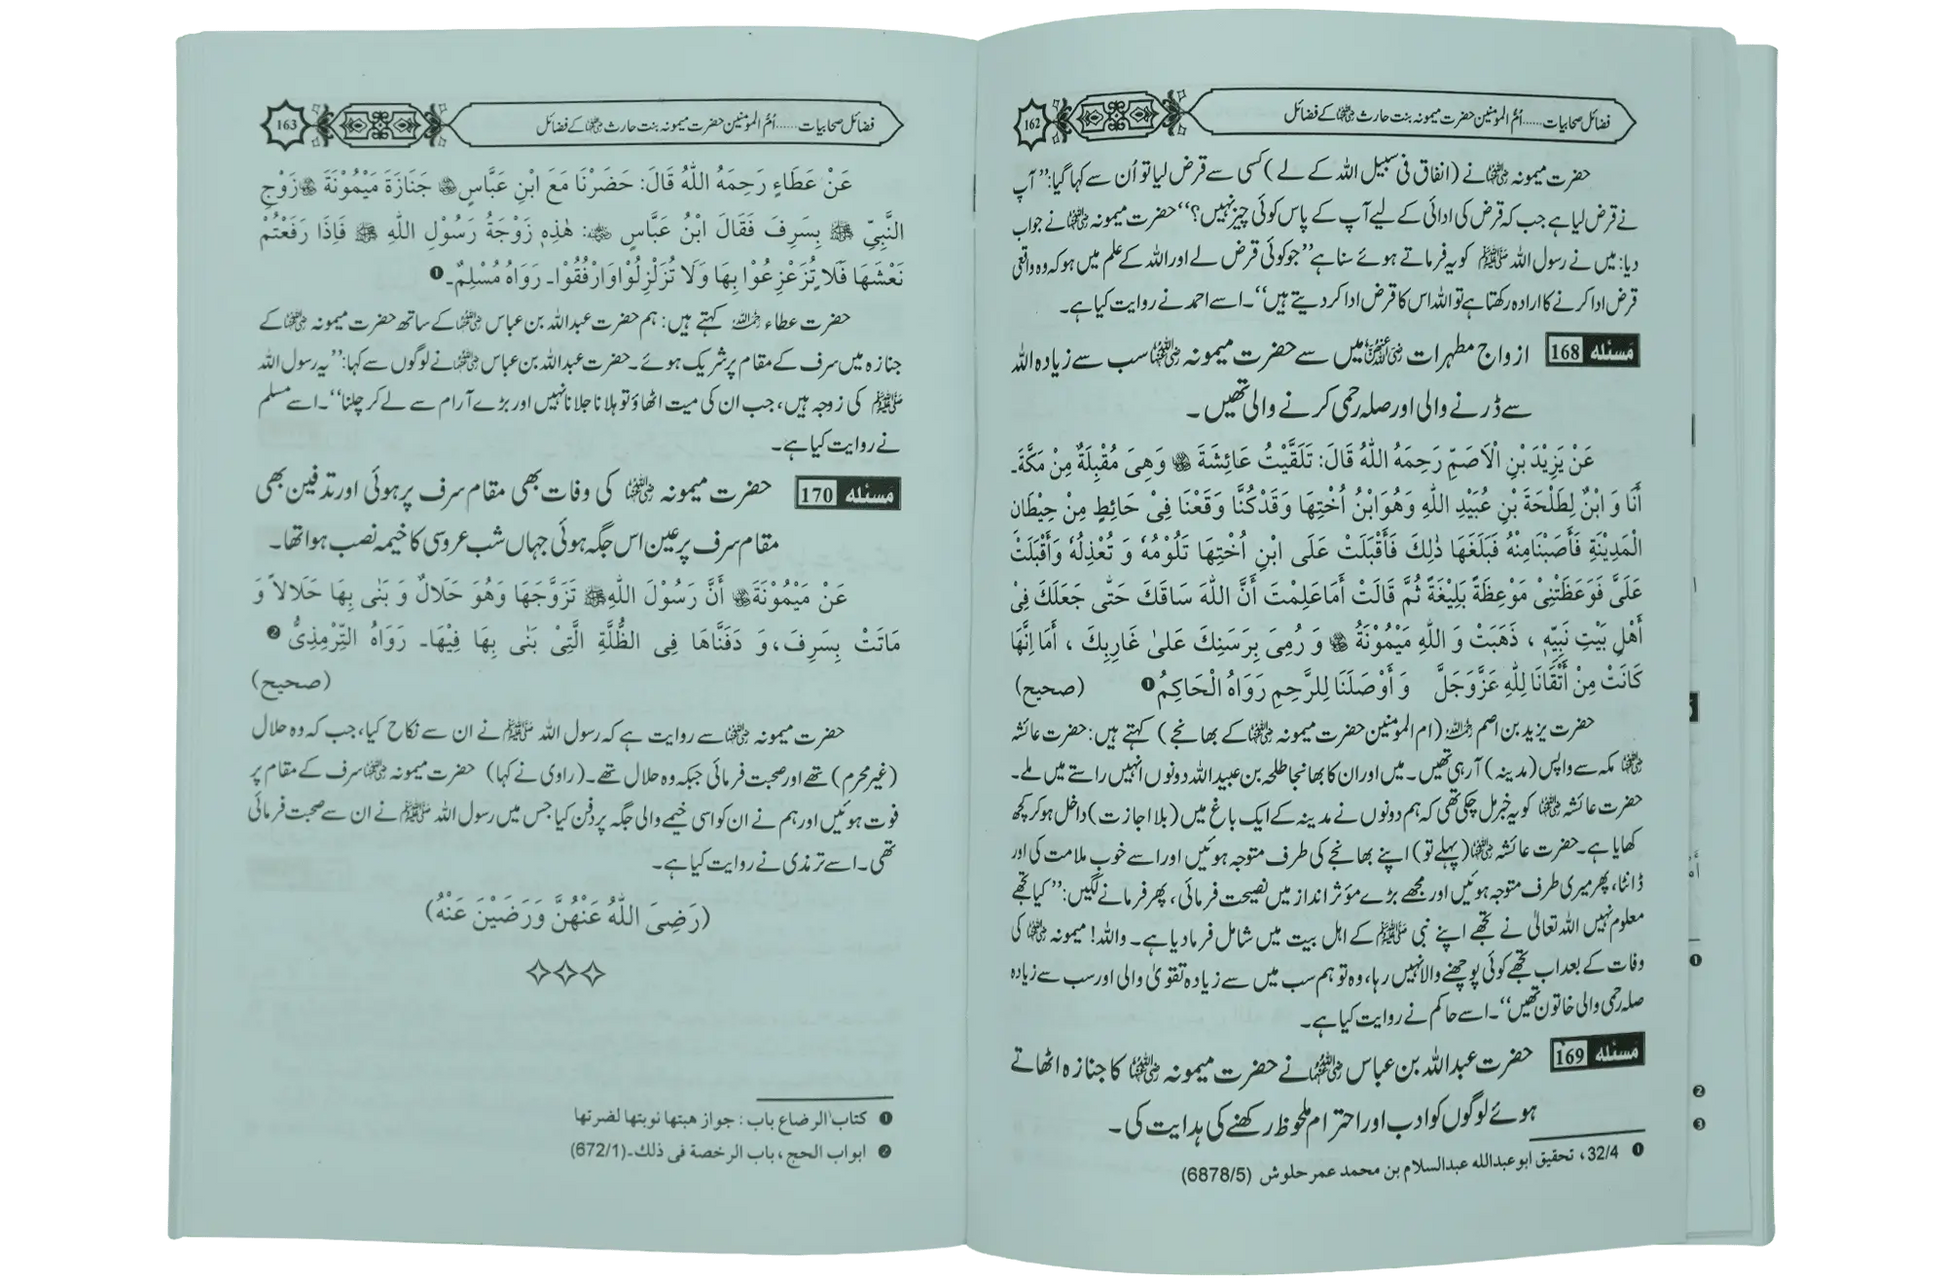 162
فضائل صحابیات......اُمّ المؤمنین حضرت میمونہ بنت حارث رضی اللہ عنہا کے فضائل
حضرت میمونہ رضی اللہ عنہا نے (انفاق فی سبیل اللہ کے لے) کسی سے قرض لیا تو اُن سے کہا گیا:’’آپ
نے قرض لیا ہے جب کہ قرض کی ادائی کے لیے آپ کے پاس کوئی چیز نہیں؟‘‘ حضرت میمونہ رضی اللہ عنہا نے جواب
دیا: میں نے رسول اللہ ﷺ کو یہ فرماتے ہوئے سنا ہے’’جو کوئی قرض لے اور اللہ کے علم میں ہو کہ وہ واقعی
قرض ادا کرنے کا ارادہ رکھتا ہے تو اللہ اس کا قرض ادا کر دیتے ہیں‘‘۔ اسے احمد نے روایت کیا ہے۔
مَسئله 168 ازواج مطہرات رضی اللہ عنہن میں سے حضرت میمونہ رضی اللہ عنہا سب سے زیادہ اللہ
سے ڈرنے والی اور صلہ رحمی کرنے والی تھیں۔
عَنْ يَزِيْدَ بْنِ الْاَصَمِّ رَحِمَهُ اللّٰهُ قَالَ: تَلَقَّيْتُ عَائِشَةَ رضی اللہ عنہا وَهِىَ مُقْبِلَةٌ مِنْ مَكَّةَ۔
أَنَا وَ ابْنٌ لِطَلْحَةَ بْنِ عُبَيْدِ اللّٰهِ وَهُوَ ابْنُ اُخْتِهَا وَقَدْ كُنَّا وَقَعْنَا فِىْ حَائِطٍ مِنْ حِيْطَانِ
الْمَدِيْنَةِ فَأَصَبْنَا مِنْهُ فَبَلَغَهَا ذٰلِكَ فَأَقْبَلَتْ عَلَى ابْنِ اُخْتِهَا تَلُوْمُهُ وَ تُعْذِلُهُ وَأَقْبَلَتْ
عَلَىَّ فَوَعَظَتْنِىْ مَوْعِظَةً بَلِيْغَةً ثُمَّ قَالَتْ أَمَا عَلِمْتَ أَنَّ اللّٰهَ سَاقَكَ حَتّٰى جَعَلَكَ فِىْ
أَهْلِ بَيْتِ نَبِيِّهٖ ، ذَهَبَتْ وَ اللّٰهِ مَيْمُوْنَةُ رضی اللہ عنہا وَ رُمِىَ بِرَسَنِكَ عَلىٰ غَارِبِكَ ، أَمَا اِنَّهَا
كَانَتْ مِنْ أَتْقَانَا لِلّٰهِ عَزَّوَجَلَّ وَ أَوْصَلَنَا لِلرَّحِمِ رَوَاهُ الْحَاكِمُ❶ (صحيح)
حضرت یزید بن اصم رحمہ اللہ (ام المومنین حضرت میمونہ رضی اللہ عنہا کے بھانجے) کہتے ہیں: حضرت عائشہ
رضی اللہ عنہا مکہ سے واپس (مدینہ) آ رہی تھیں۔ میں اور ان کا بھانجا طلحہ بن عبید اللہ دونوں انہیں راستے میں ملے۔
حضرت عائشہ رضی اللہ عنہا کو یہ خبر مل چکی تھی کہ ہم دونوں نے مدینہ کے ایک باغ میں (بلا اجازت) داخل ہو کر کچھ
کھایا ہے۔ حضرت عائشہ رضی اللہ عنہا (پہلے تو) اپنے بھانجے کی طرف متوجہ ہوئیں اور اسے خوب ملامت کی اور
ڈانٹا، پھر میری طرف متوجہ ہوئیں اور مجھے بڑے مؤثر انداز میں نصیحت فرمائی، پھر فرمانے لگیں:’’کیا تجھے
معلوم نہیں اللہ تعالیٰ نے تجھے اپنے نبی ﷺ کے اہل بیت میں شامل فرما دیا ہے۔ واللہ! میمونہ رضی اللہ عنہا کی
وفات کے بعد اب تجھے کوئی پوچھنے والا نہیں رہا، وہ تو ہم سب میں سے زیادہ تقویٰ والی اور سب سے زیادہ
صلہ رحمی والی خاتون تھیں‘‘۔ اسے حاکم نے روایت کیا ہے۔
مَسئله 169 حضرت عبداللہ بن عباس رضی اللہ عنہما نے حضرت میمونہ رضی اللہ عنہا کا جنازہ اٹھاتے
ہوئے لوگوں کو ادب اور احترام ملحوظ رکھنے کی ہدایت کی۔
❶ 32/4، تحقيق ابو عبدالله عبدالسلام بن محمد عمر حلوش (6878/5)
163
فضائل صحابیات......اُمّ المؤمنین حضرت میمونہ بنت حارث رضی اللہ عنہا کے فضائل
عَنْ عَطَاءٍ رَحِمَهُ اللّٰهُ قَالَ: حَضَرْنَا مَعَ ابْنِ عَبَّاسٍ رضی اللہ عنہما جَنَازَةَ مَيْمُوْنَةَ رضی اللہ عنہا زَوْجِ
النَّبِيِّ ﷺ بِسَرِفَ فَقَالَ ابْنُ عَبَّاسٍ رضی اللہ عنہما: هٰذِهٖ زَوْجَةُ رَسُوْلِ اللّٰهِ ﷺ فَاِذَا رَفَعْتُمْ
نَعْشَهَا فَلَا تُزَعْزِعُوْا بِهَا وَلَا تُزَلْزِلُوْا وَارْفُقُوْا۔ رَوَاهُ مُسْلِمٌ۔❶
حضرت عطاء رحمہ اللہ کہتے ہیں: ہم حضرت عبداللہ بن عباس رضی اللہ عنہما کے ساتھ حضرت میمونہ رضی اللہ عنہا کے
جنازہ میں سرف کے مقام پر شریک ہوئے۔ حضرت عبداللہ بن عباس رضی اللہ عنہما نے لوگوں سے کہا:’’یہ رسول اللہ
ﷺ کی زوجہ ہیں، جب ان کی میت اٹھاؤ تو ہلانا جلانا نہیں اور بڑے آرام سے لے کر چلنا‘‘۔ اسے مسلم
نے روایت کیا ہے۔
مَسئله 170 حضرت میمونہ رضی اللہ عنہا کی وفات بھی مقام سرف پر ہوئی اور تدفین بھی
مقام سرف پر عین اس جگہ ہوئی جہاں شب عروسی کا خیمہ نصب ہوا تھا۔
عَنْ مَيْمُوْنَةَ رضی اللہ عنہا أَنَّ رَسُوْلَ اللّٰهِ ﷺ تَزَوَّجَهَا وَهُوَ حَلَالٌ وَ بَنٰى بِهَا حَلَالاً وَ
مَاتَتْ بِسَرِفَ، وَ دَفَنَّاهَا فِى الظُّلَّةِ الَّتِىْ بَنٰى بِهَا فِيْهَا۔ رَوَاهُ التِّرْمِذِىُّ❷
(صحيح)
حضرت میمونہ رضی اللہ عنہا سے روایت ہے کہ رسول اللہ ﷺ نے ان سے نکاح کیا، جب کہ وہ حلال
(غیر محرم) تھے اور صحبت فرمائی جبکہ وہ حلال تھے۔ (راوی نے کہا) حضرت میمونہ رضی اللہ عنہا سرف کے مقام پر
فوت ہوئیں اور ہم نے ان کو اسی خیمے والی جگہ پر دفن کیا جس میں رسول اللہ ﷺ نے ان سے صحبت فرمائی
تھی۔ اسے ترمذی نے روایت کیا ہے۔
(رَضِىَ اللّٰهُ عَنْهُنَّ وَرَضَيْنَ عَنْهُ)
❶ كتاب الرضاع باب : جواز هبتها نوبتها لضرتها
❷ ابواب الحج ، باب الرخصة فى ذلك۔(672/1)